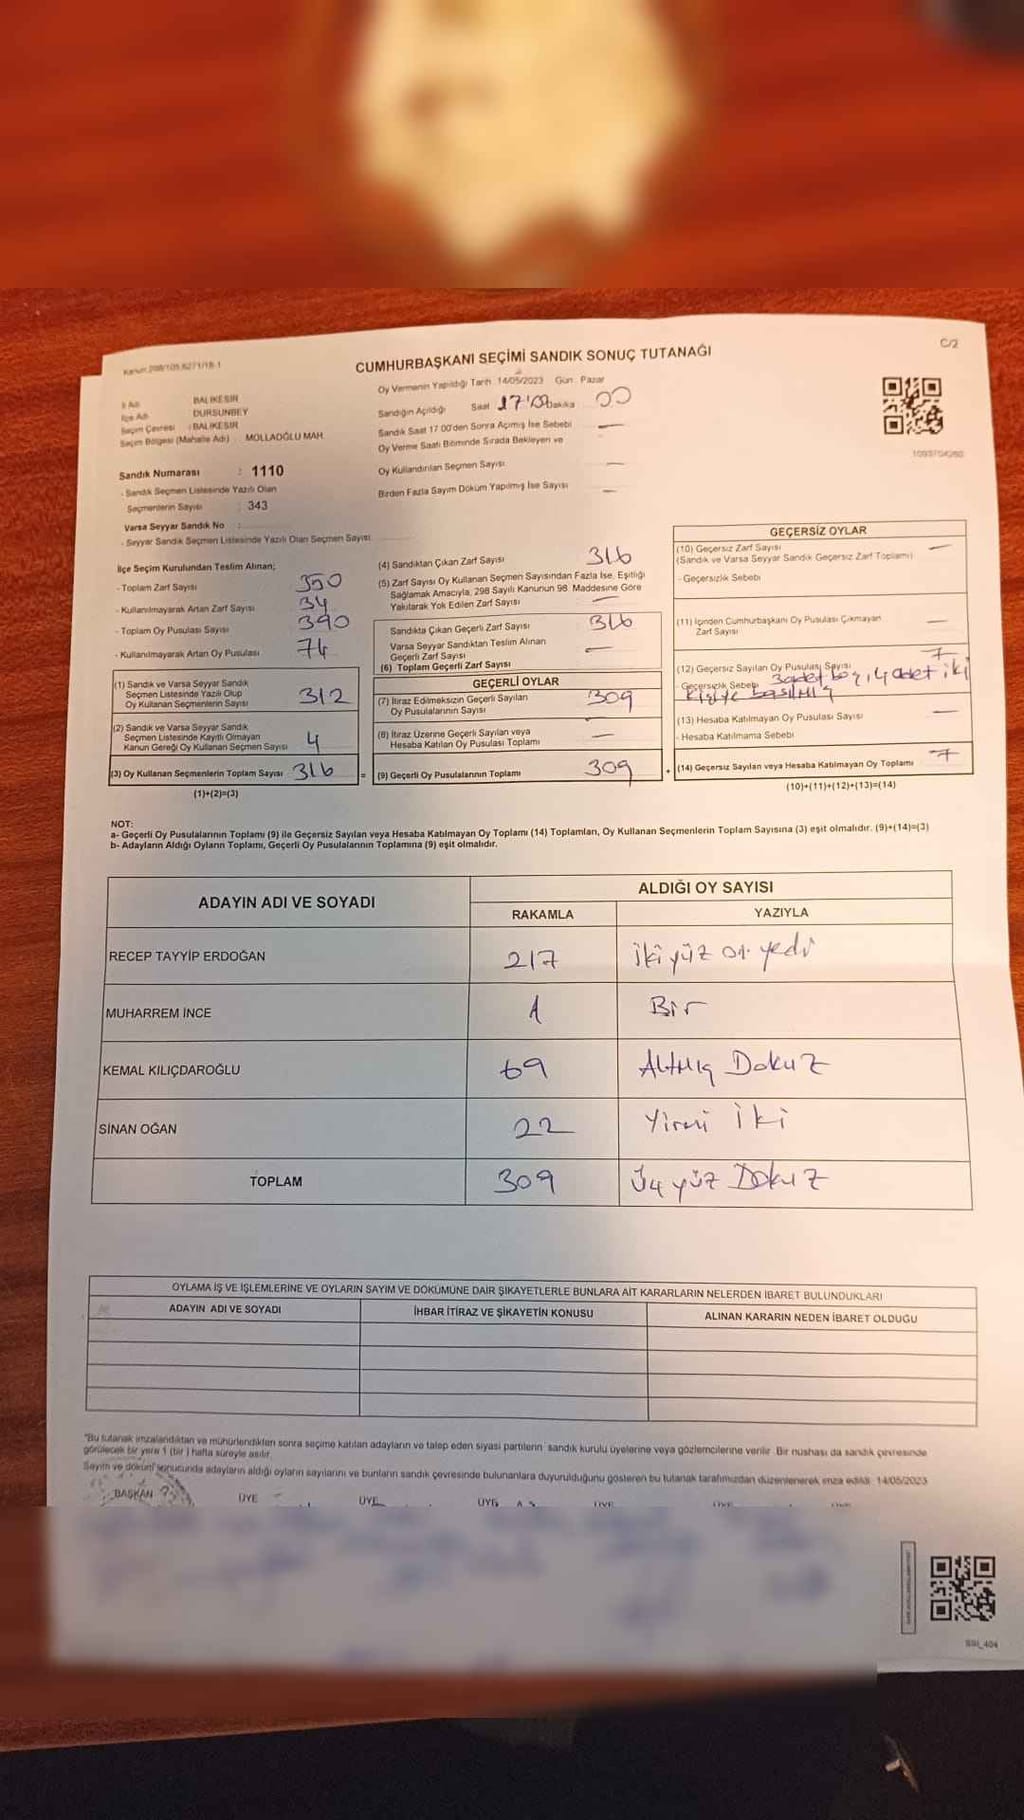 Kanun 298/105,6271/18-1
C/2
CUMHURBAŞKANI SEÇİMİ SANDIK SONUÇ TUTANAĞI
İl Adı BALIKESİR
İlçe Adı DURSUNBEY
Seçim Çevresi : BALIKESİR
Seçim Bölgesi (Mahalle Adı) : MOLLAOĞLU MAH.
Sandık Numarası : 1110
- Sandık Seçmen Listesinde Yazılı Olan
Seçmenlerin Sayısı : 343
Varsa Seyyar Sandık No :
- Seyyar Sandık Seçmen Listesinde Yazılı Olan Seçmen Sayısı
Oy Vermenin Yapıldığı Tarih 14/05/2023 Gün : Pazar
Sandığın Açıldığı Saat 17:00 Dakika 00
Sandık Saat 17.00'den Sonra Açılmış İse Sebebi —
Oy Verme Saati Bitiminde Sırada Bekleyen ve
Oy Kullandırılan Seçmen Sayısı —
Birden Fazla Sayım Döküm Yapılmış İse Sayısı —
İlçe Seçim Kurulundan Teslim Alınan;
- Toplam Zarf Sayısı 350
- Kullanılmayarak Artan Zarf Sayısı 34
- Toplam Oy Pusulası Sayısı 390
- Kullanılmayarak Artan Oy Pusulası 74
(1) Sandık ve Varsa Seyyar Sandık
Seçmen Listesinde Yazılı Olup
Oy Kullanan Seçmenlerin Sayısı 312
(2) Sandık ve Varsa Seyyar Sandık
Seçmen Listesinde Kayıtlı Olmayan
Kanun Gereği Oy Kullanan Seçmen Sayısı 4
(3) Oy Kullanan Seçmenlerin Toplam Sayısı 316
(1)+(2)=(3)
(4) Sandıktan Çıkan Zarf Sayısı 316
(5) Zarf Sayısı Oy Kullanan Seçmen Sayısından Fazla İse, Eşitliği
Sağlamak Amacıyla, 298 Sayılı Kanunun 98. Maddesine Göre
Yakılarak Yok Edilen Zarf Sayısı —
Sandıkta Çıkan Geçerli Zarf Sayısı 316
Varsa Seyyar Sandıktan Teslim Alınan
Geçerli Zarf Sayısı —
(6) Toplam Geçerli Zarf Sayısı
GEÇERLİ OYLAR
(7) İtiraz Edilmeksizin Geçerli Sayılan
Oy Pusulalarının Sayısı 309
(8) İtiraz Üzerine Geçerli Sayılan veya
Hesaba Katılan Oy Pusulası Toplamı —
= (9) Geçerli Oy Pusulalarının Toplamı 309
GEÇERSİZ OYLAR
(10) Geçersiz Zarf Sayısı —
(Sandık ve Varsa Seyyar Sandık Geçersiz Zarf Toplamı)
- Geçersizlik Sebebi
(11) İçinden Cumhurbaşkanı Oy Pusulası Çıkmayan
Zarf Sayısı —
(12) Geçersiz Sayılan Oy Pusulası Sayısı 7
- Geçersizlik Sebebi 3 adet boş, 4 adet iki
kişiye basılmış
(13) Hesaba Katılmayan Oy Pusulası Sayısı —
- Hesaba Katılmama Sebebi
+ (14) Geçersiz Sayılan veya Hesaba Katılmayan Oy Toplamı 7
(10)+(11)+(12)+(13)=(14)
NOT:
a- Geçerli Oy Pusulalarının Toplamı (9) ile Geçersiz Sayılan veya Hesaba Katılmayan Oy Toplamı (14) Toplamları, Oy Kullanan Seçmenlerin Toplam Sayısına (3) eşit olmalıdır. (9)+(14)=(3)
b- Adayların Aldığı Oyların Toplamı, Geçerli Oy Pusulalarının Toplamına (9) eşit olmalıdır.
ADAYIN ADI VE SOYADI
ALDIĞI OY SAYISI
RAKAMLA YAZIYLA
RECEP TAYYİP ERDOĞAN 217 İki yüz on yedi
MUHARREM İNCE 1 Bir
KEMAL KILIÇDAROĞLU 69 Altmış Dokuz
SİNAN OĞAN 22 Yirmi İki
TOPLAM 309 Üç yüz Dokuz
OYLAMA İŞ VE İŞLEMLERİNE VE OYLARIN SAYIM VE DÖKÜMÜNE DAİR ŞİKAYETLERLE BUNLARA AİT KARARLARIN NELERDEN İBARET BULUNDUKLARI
ADAYIN ADI VE SOYADI İHBAR İTİRAZ VE ŞİKAYETİN KONUSU ALINAN KARARIN NEDEN İBARET OLDUĞU
"Bu tutanak imzalandıktan ve mühürlendikten sonra seçime katılan adayların ve talep eden siyasi partilerin sandık kurulu üyelerine veya gözlemcilerine verilir. Bir nüshası da sandık çevresinde
görülecek bir yere 1 (bir) hafta süreyle asılır.
Sayım ve döküm sonucunda adayların aldığı oyların sayılarını ve bunların sandık çevresinde bulunanlara duyurulduğunu gösteren bu tutanak tarafımızdan düzenlenerek imza edildi. 14/05/2023
BAŞKAN ÜYE ÜYE ÜYE ÜYE ÜYE ÜYE
SSI_404